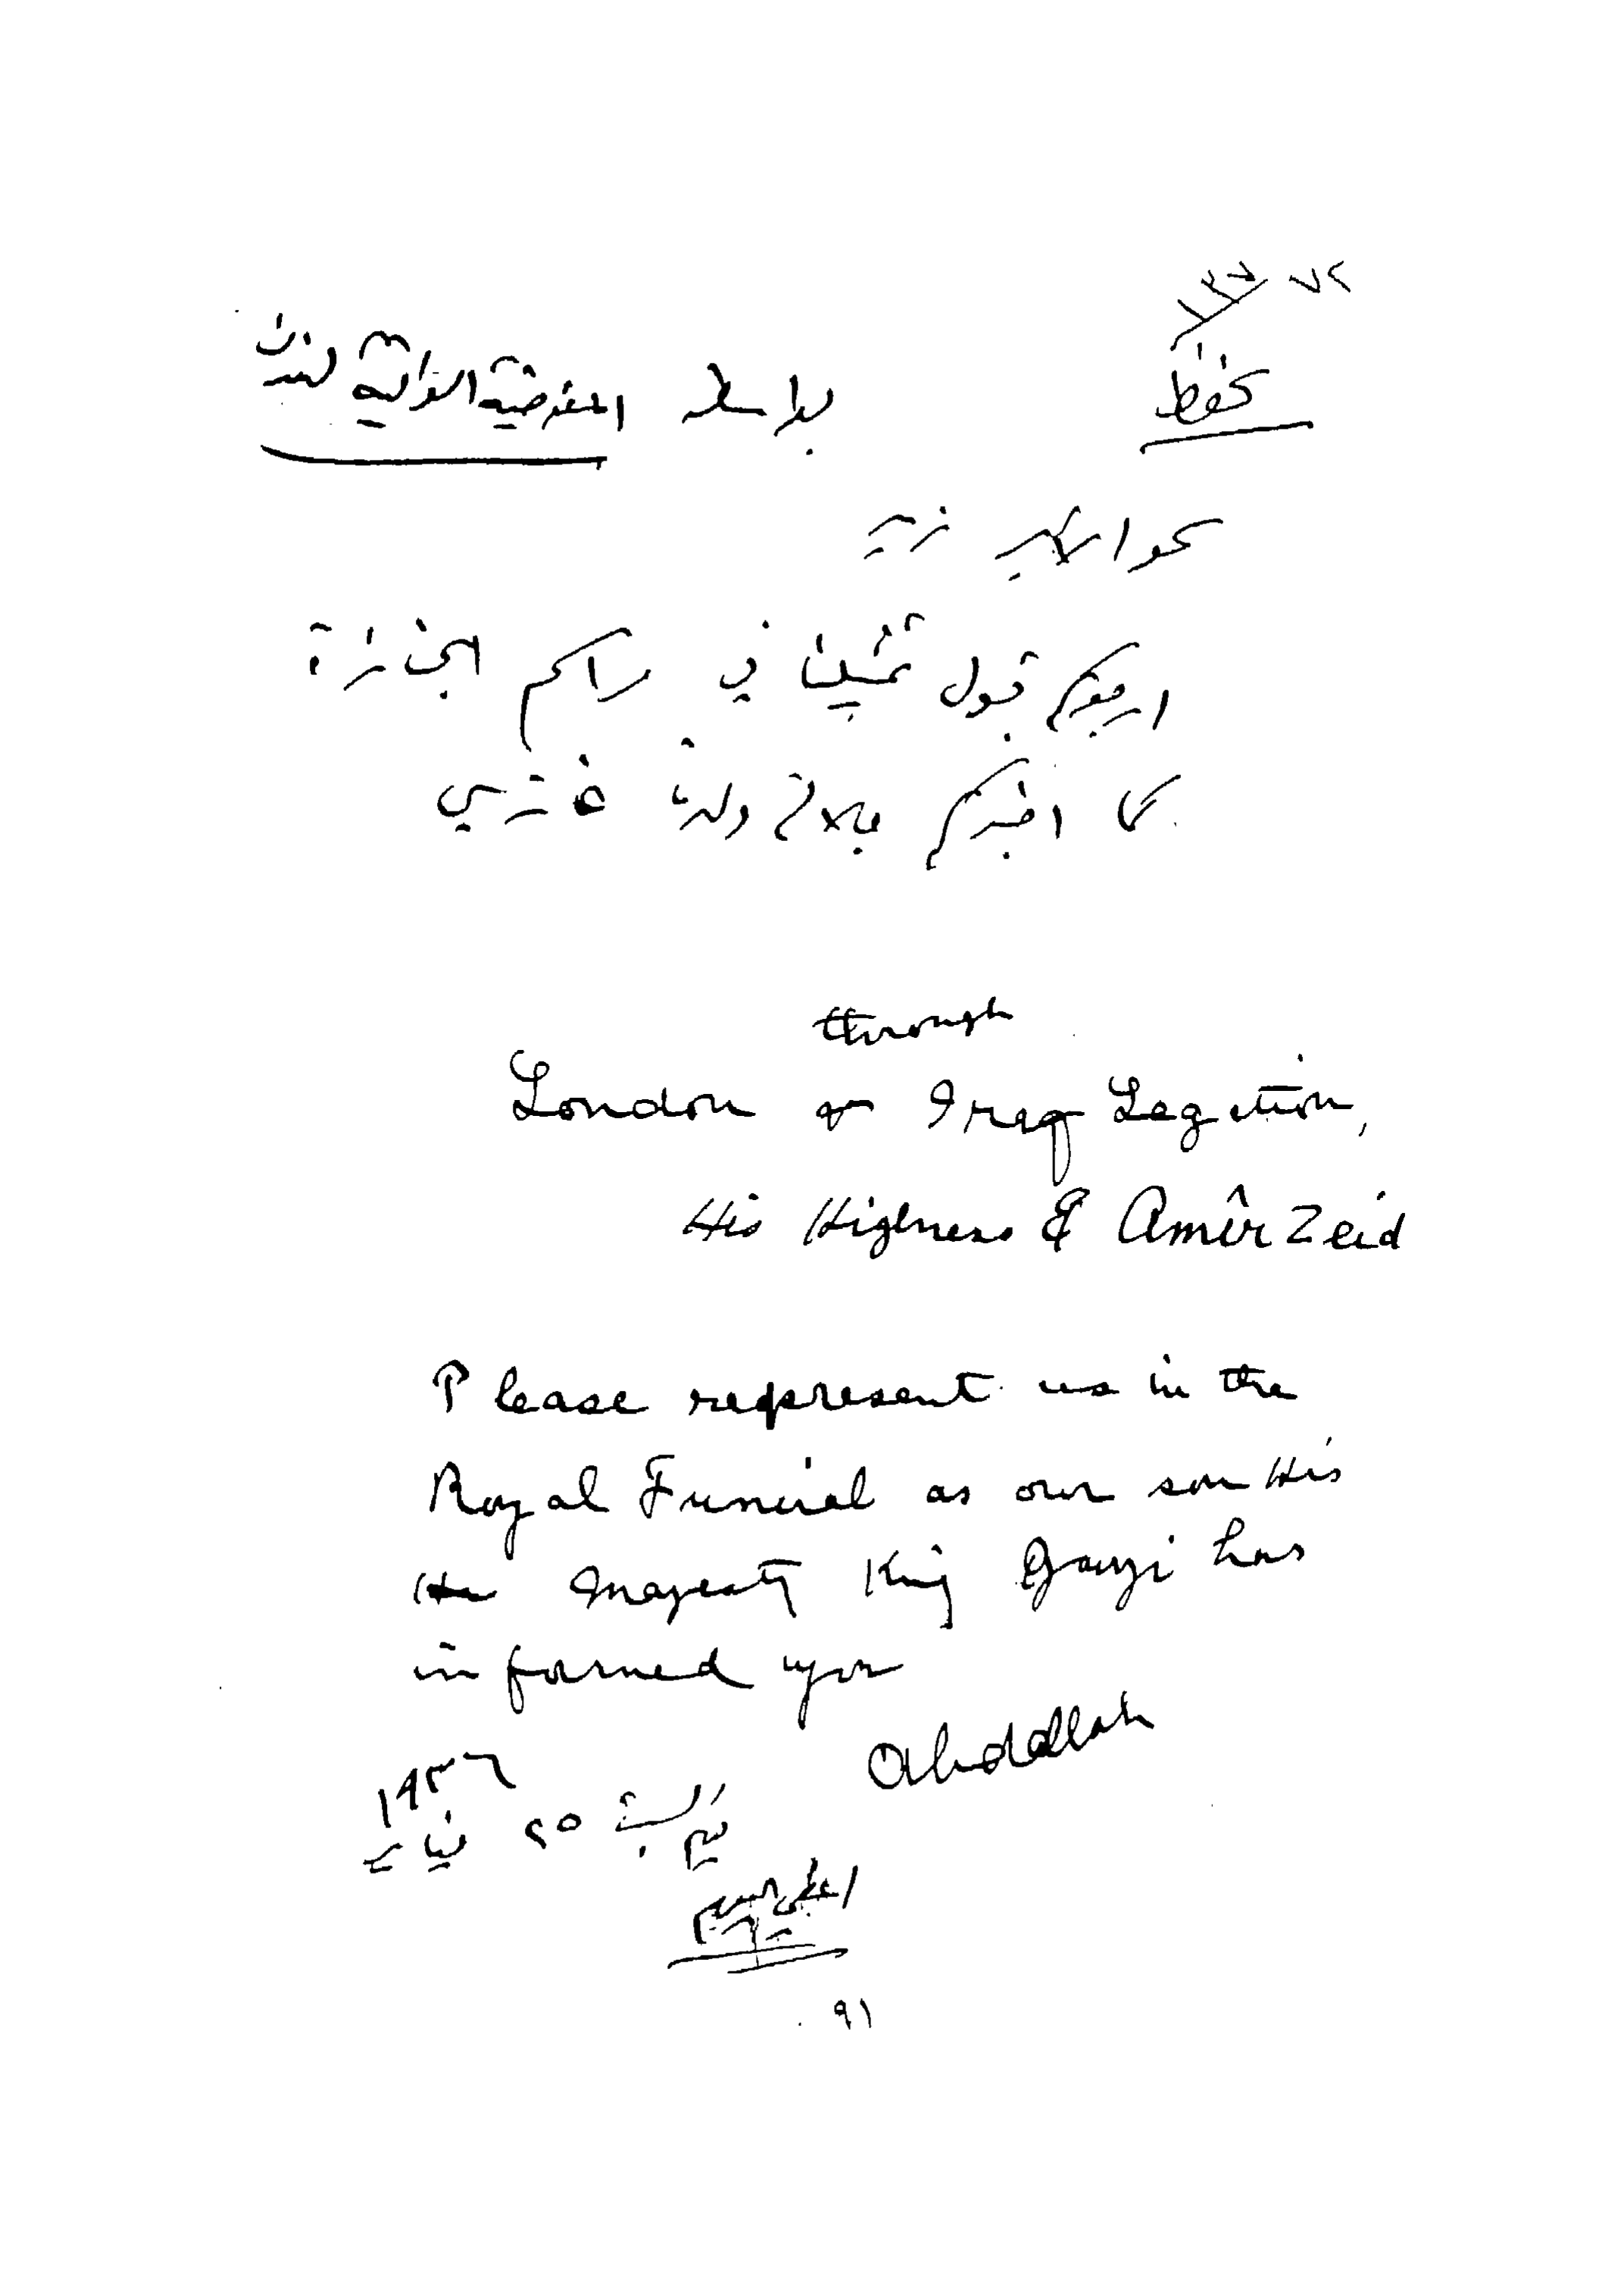 يحفظ
بواسطة المفوضية العراقية لندن
سمو الامير زيد
ارجوكم قبول تمثيلنا في مراسم الجنازة
كما اخبركم جلالة ولدنا غازي
through
London Iraq Legation,
His Highness Amîr Zeid
Please represent us in the
Royal Funeral as our son His
Majesty King Gazi has
informed you
Abdallah
١٩٣٦
٢٥ يناير
٩١